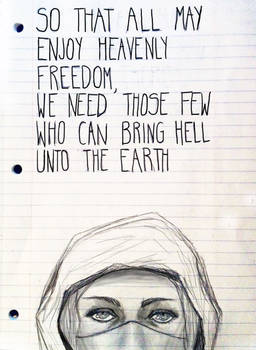 SO THAT ALL MAY
ENJOY HEAVENLY
FREEDOM,
WE NEED THOSE FEW
WHO CAN BRING HELL
UNTO THE EARTH